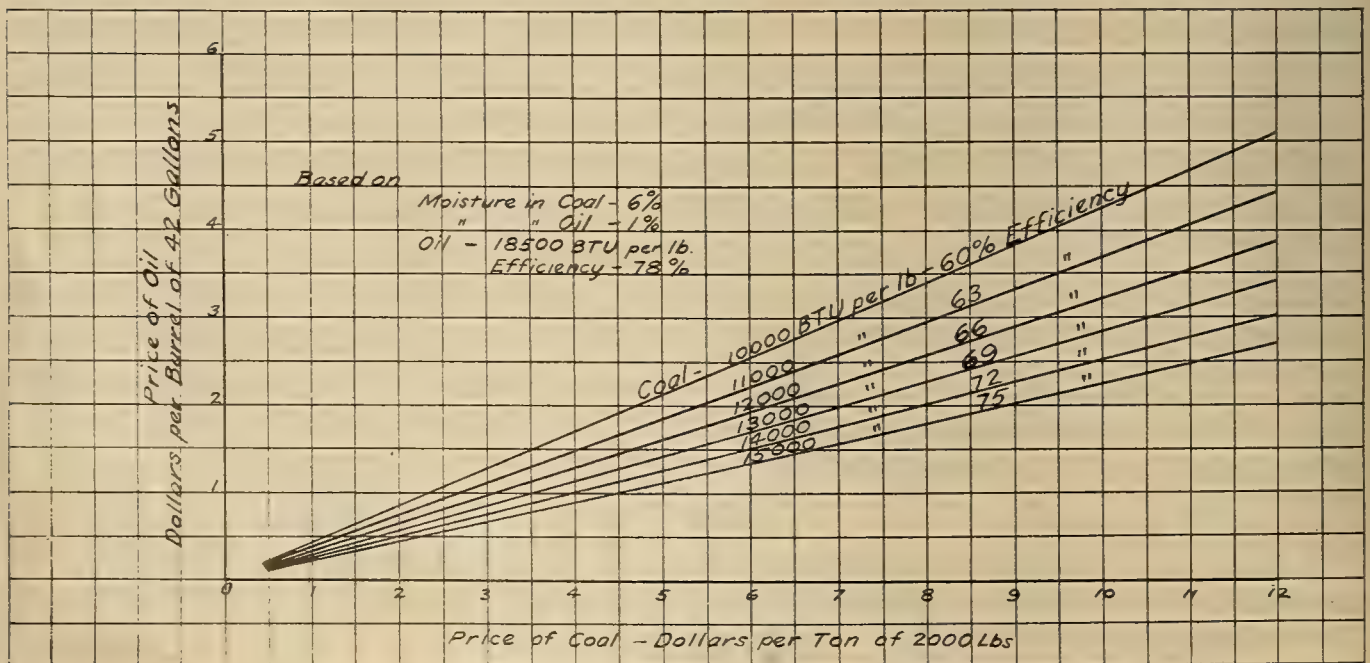 6
5
4
3
2
1
Price of Oil
Dollars per Barrel of 42 Gallons
Based on
Moisture in Coal - 6%
" " Oil - 1%
Oil - 18500 BTU per lb.
Efficiency - 78%
Coal - 10000 BTU per lb - 60% Efficiency
11000 " 63 "
12000 " 66 "
13000 " 69 "
14000 " 72 "
15000 " 75 "
0 1 2 3 4 5 6 7 8 9 10 11 12
Price of Coal - Dollars per Ton of 2000 Lbs